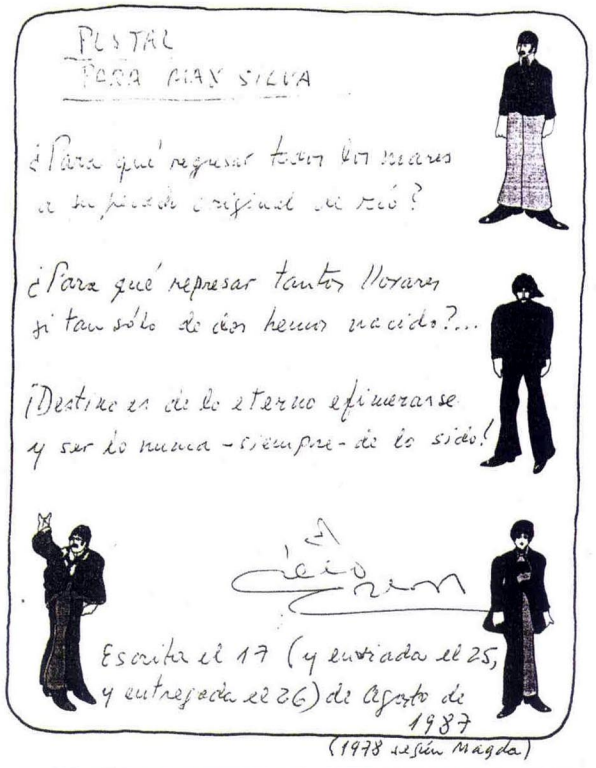 POSTAL
PARA MAX SILVA
¿Para qué regresar todos los mares
a su original de río?
¿Para qué represar tantos llorares
si tan sólo de dos hemos nacido?...
¡Destino es de lo eterno efimerarse
y ser lo nunca -siempre- de lo sido!
Escrita el 17 (y enviada el 25,
y entregada el 26) de Agosto de
1987
(1978 según Magda)